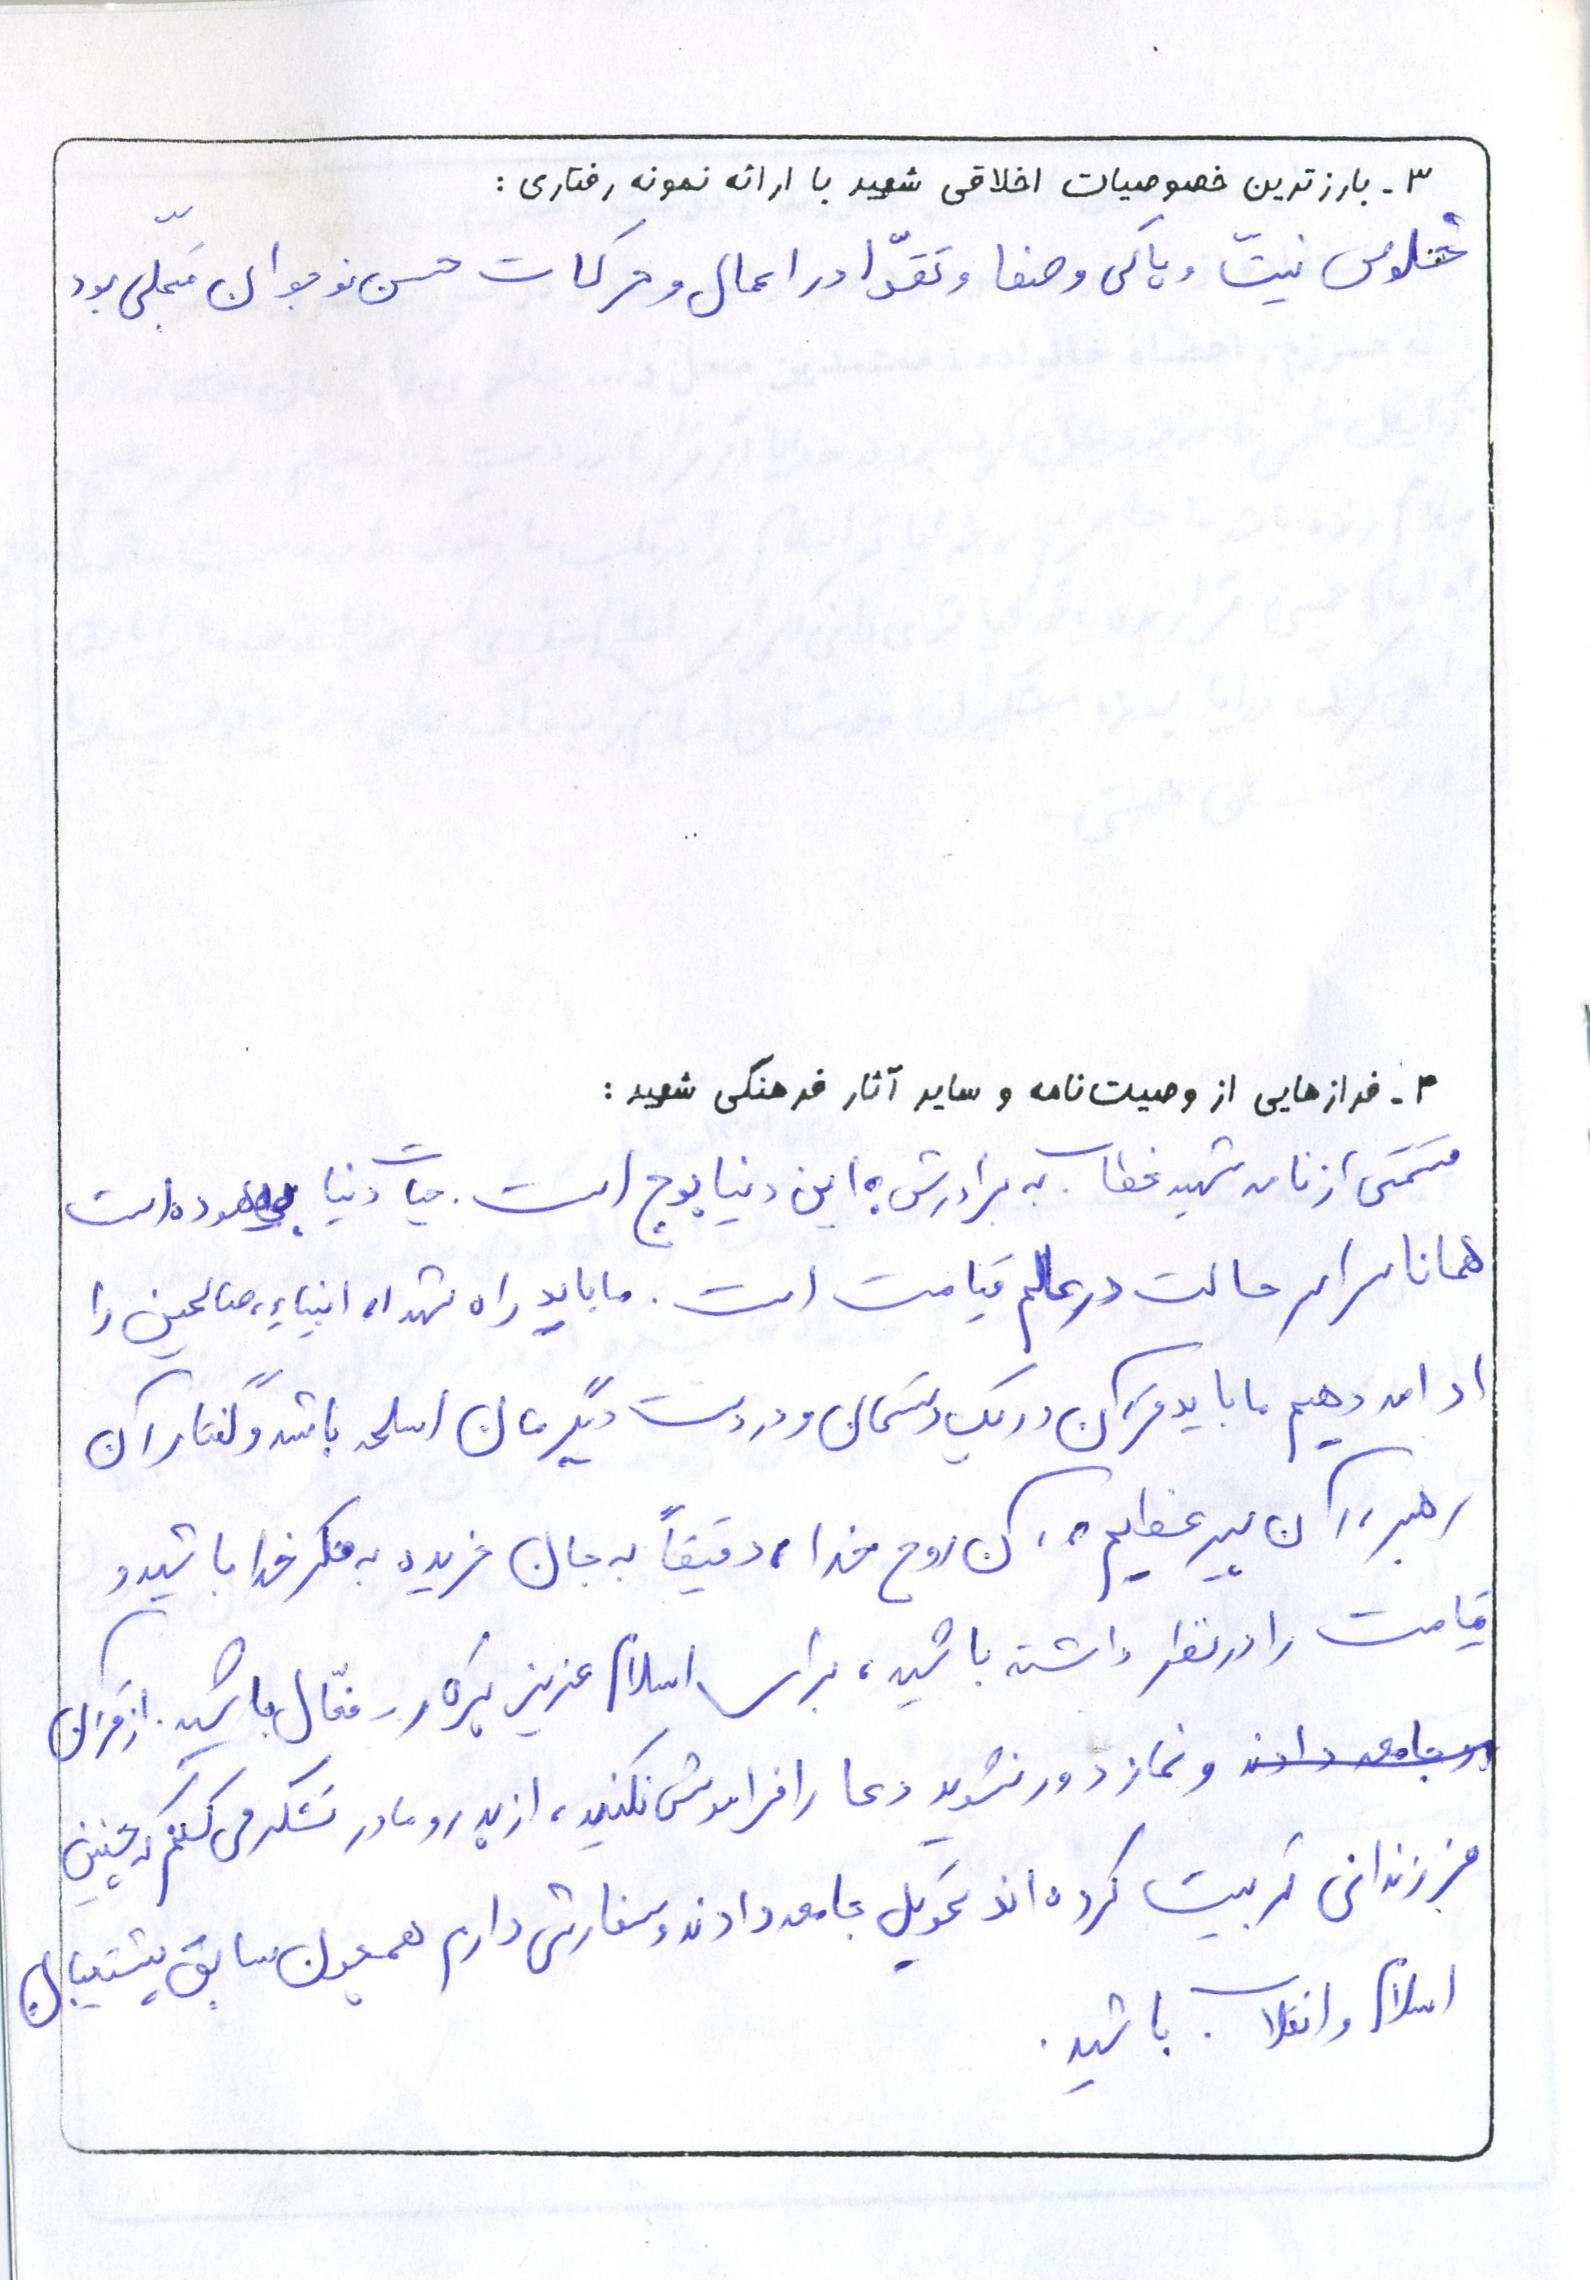 ۳ـ بارزترین خصوصیات اخلاقی شهید با ارائه نمونه رفتاری :
خلوص نیّت و پاکی و صفا و تقوّا در اعمال و حرکات حسن نوجوان متجلّی بود
۴ـ فرازهایی از وصیت‌نامه و سایر آثار فرهنگی شهید :
قسمتی از نامه شهید خطاب به برادرش: این دنیا پوچ است. حیات دنیا بیهوده است
همانا سرای حالت در عالم قیامت است. ما باید راه شهداء، انبیاء، صالحین را
ادامه دهیم ما باید قرآن در یک دستمان و در دست دیگرمان اسلحه باشد و گفتار آن
رهبر، آن پیر عظیم، آن روح خدا، دقیقاً به جان خریده به فکر خدا باشید و
قیامت را در نظر داشته باشید، برای اسلام عزیز پرکار و فعّال باشید. از قرآن
و نماز دور نشوید دعا را فراموش نکنید، از پدر و مادر تشکر می کنم که چنین
فرزندانی تربیت کرده اند تحویل جامعه دادند و سفارش دارم همچون سابق پشتیبان
اسلام و انقلاب باشید.